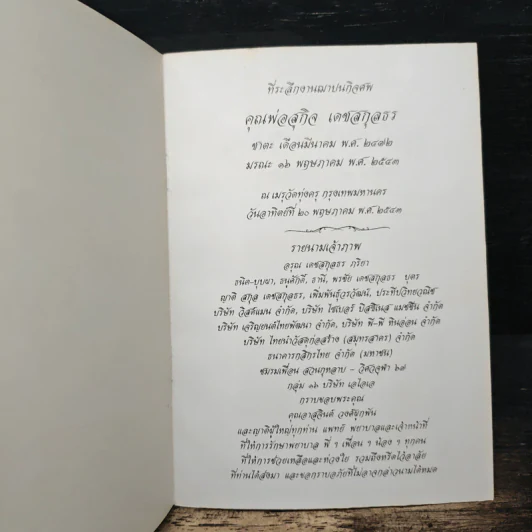 ที่ระลึกงานฌาปนกิจศพ
คุณพ่อสุกิจ เดชสกุลธร
ชาตะ เดือนมีนาคม พ.ศ. ๒๔๗๒
มรณะ ๑๖ พฤษภาคม พ.ศ. ๒๕๔๓
ณ เมรุวัดทุ่งครุ กรุงเทพมหานคร
วันอาทิตย์ที่ ๒๐ พฤษภาคม พ.ศ. ๒๕๔๓
รายนามเจ้าภาพ
อรุณ เดชสกุลธร ภริยา
ธนิต-บุบผา, ธนศักดิ์, ธานี, พรชัย เดชสกุลธร บุตร
ญาติ สกุล เดชสกุลธร, เพิ่มพันธุ์วรวัฒน์, ประทีปวิทยวณิช
บริษัท วิสดีแมน จำกัด, บริษัท ไซเบอร์ บิสซิเนส แมชชีน จำกัด
บริษัท เจริญยนต์ไทยพัฒนา จำกัด, บริษัท พี-พี ทินอ่อน จำกัด
บริษัท ไทยนำวัสดุก่อสร้าง (สมุทรสาคร) จำกัด
ธนาคารกสิกรไทย จำกัด (มหาชน)
ชมรมเพื่อน สวนกุหลาบ - วิศวจุฬา ๖๗
กลุ่ม ๑๖ บริษัท เอไอเอ
กราบขอบพระคุณ
คุณอาสจินต์ วงศ์ยุกพัน
และญาติผู้ใหญ่ทุกท่าน แพทย์ พยาบาลและเจ้าหน้าที่
ที่ให้การรักษาพยาบาล พี่ ๆ เพื่อน ๆ น้อง ๆ ทุกคน
ที่ให้การช่วยเหลือและห่วงใย รวมถึงหรีดไว้อาลัย
ที่ท่านได้ส่งมา และขอกราบอภัยที่ไม่อาจกล่าวนามได้หมด